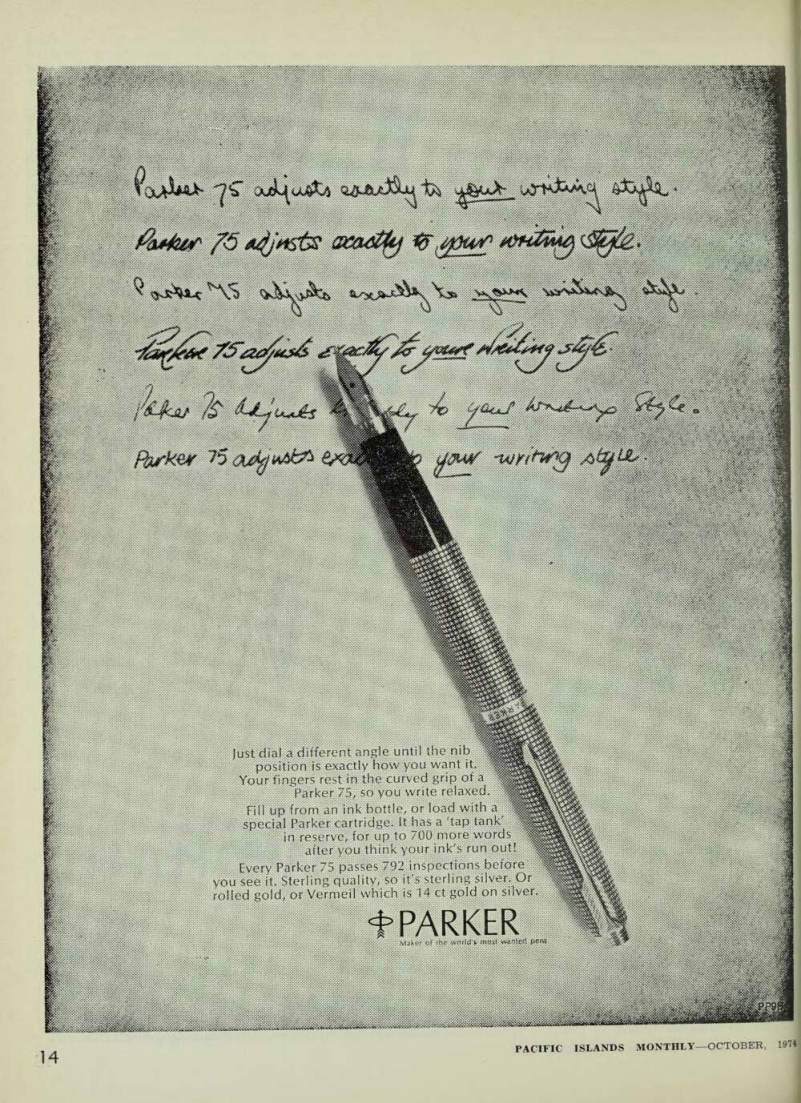 Parker 75 adjusts exactly to your writing style.
Parker 75 adjusts exactly to your writing style.
Parker 75 adjusts exactly to your writing style.
Parker 75 adjusts exactly to your writing style.
Parker 75 adjusts to your writing style.
Parker 75 adjusts your writing style.
PARKER
Just dial a different angle until the nib
position is exactly how you want it.
Your fingers rest in the curved grip of a
Parker 75, so you write relaxed.
Fill up from an ink bottle, or load with a
special Parker cartridge. It has a 'tap tank'
in reserve, for up to 700 more words
after you think your ink's run out!
Every Parker 75 passes 792 inspections before
you see it. Sterling quality, so it's sterling silver. Or
rolled gold, or Vermeil which is 14 ct gold on silver.
PARKER
Maker of the world's most wanted pens
14
PACIFIC ISLANDS MONTHLY—OCTOBER,